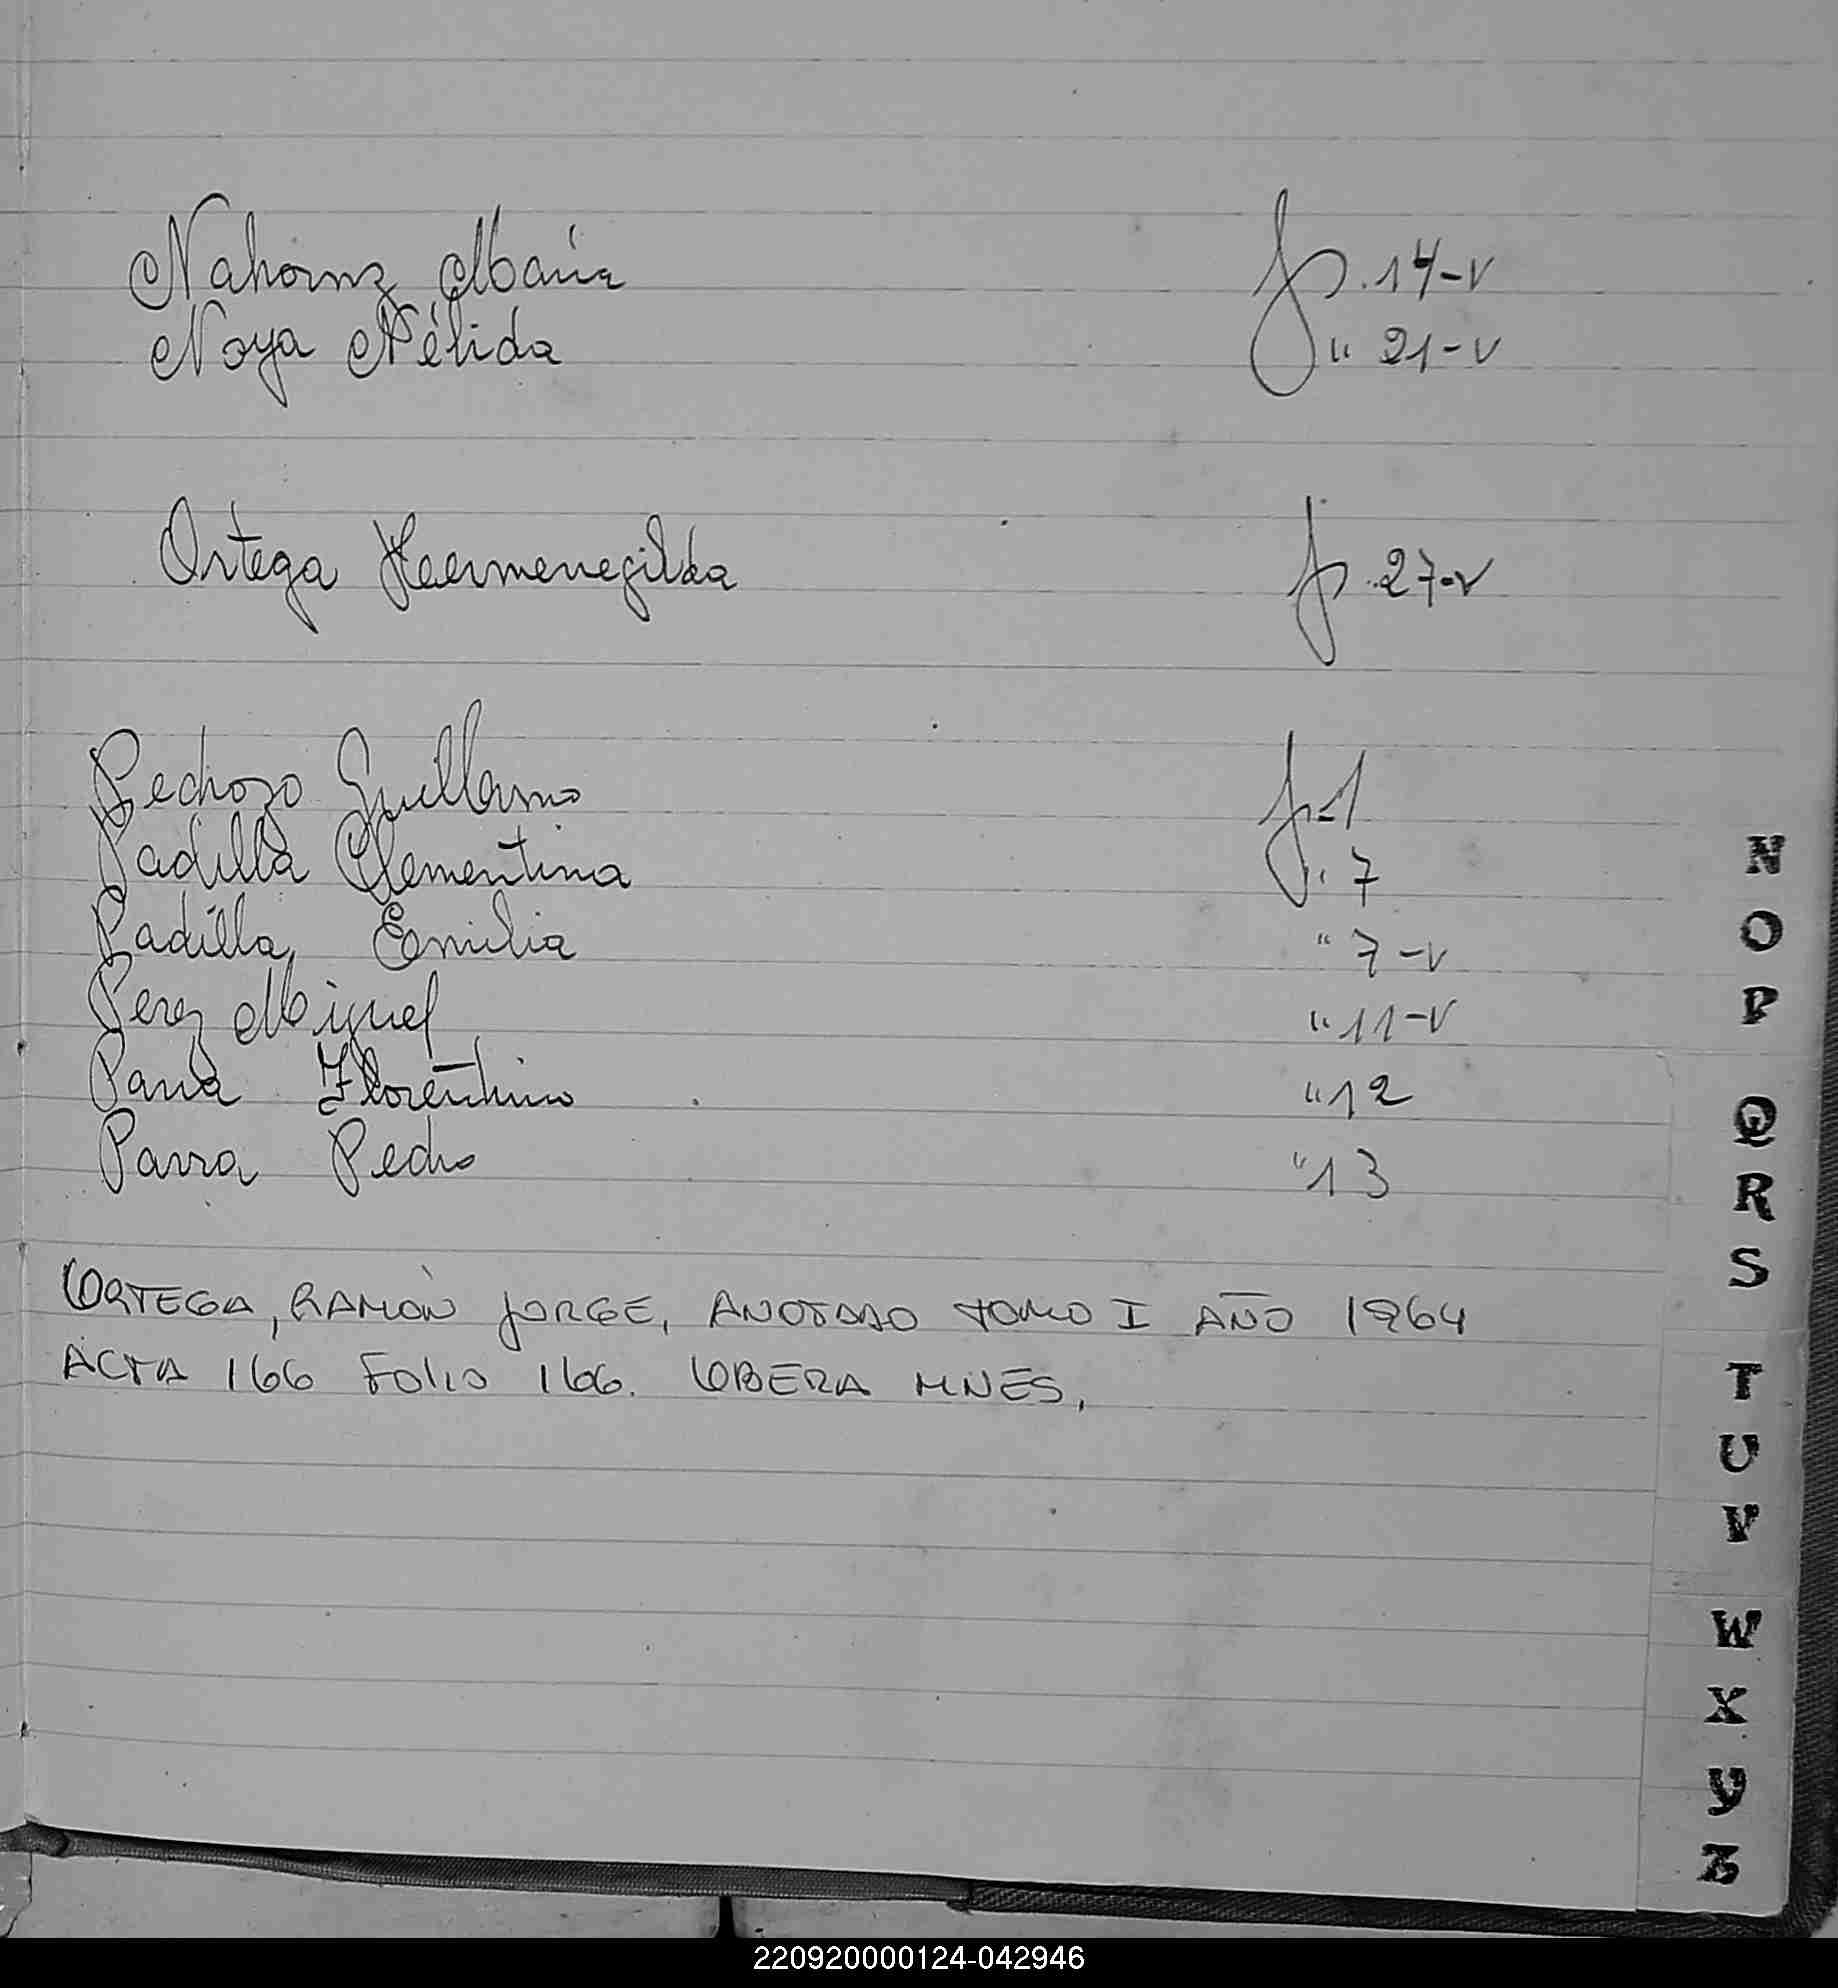 Nahornz María fs. 14-v
Noya Nélida " 21-v
Ortega Heermenegilda fs. 27-v
Pedrozo Guillermo fs 1
Padilla Clementina " 7
Padilla, Emilia " 7-v
Perez Miguel " 11-v
Parra Florentino " 12
Parra Pedro " 13
ORTEGA, RAMÓN JORGE, ANOTADO TOMO I AÑO 1964
ACTA 166 FOLIO 166. OBERA MNES,
N
O
P
Q
R
S
T
U
V
W
X
Y
Z
220920000124-042946